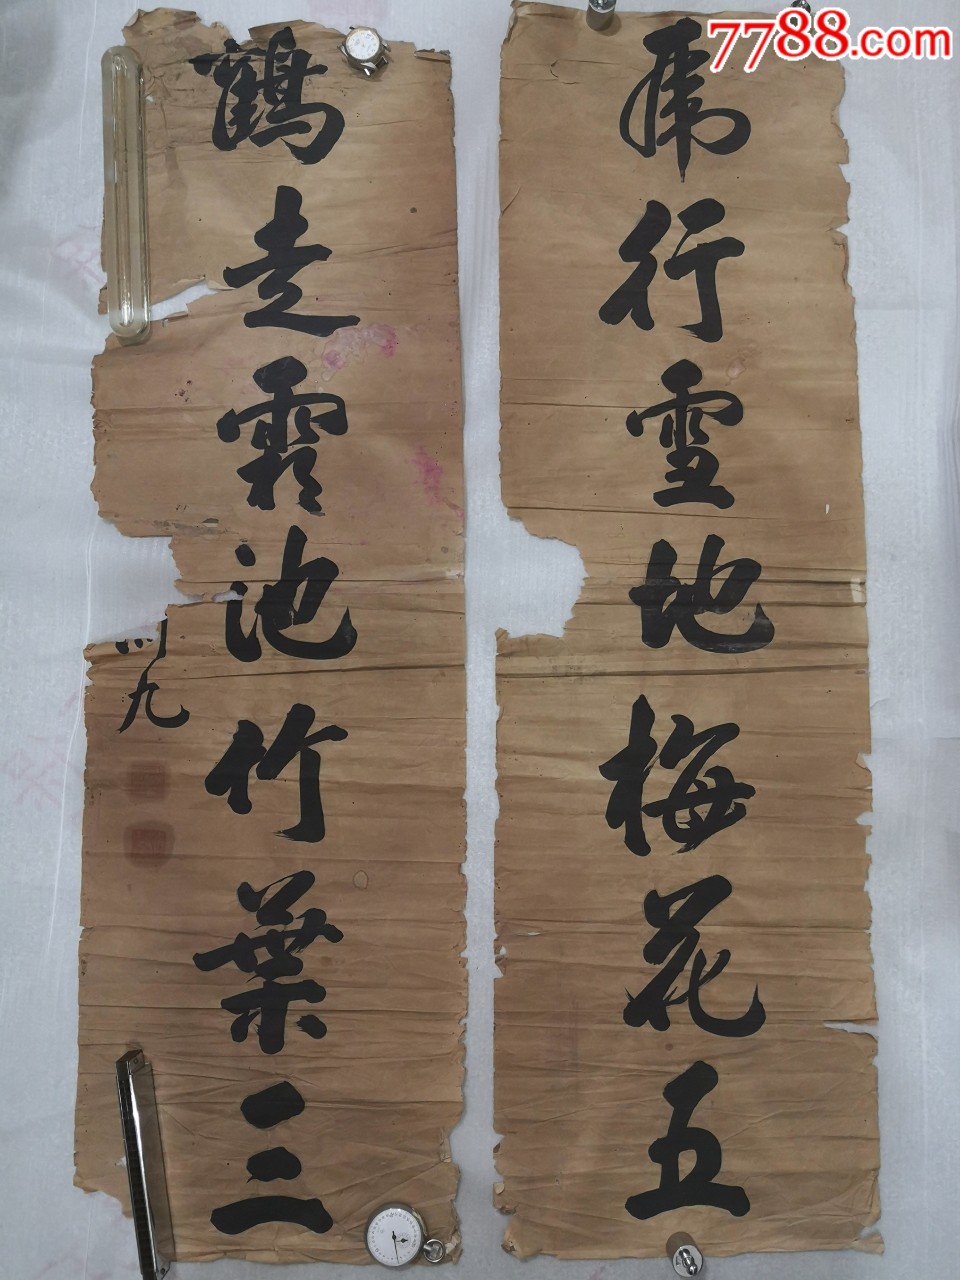 7788.com
虎行雪地梅花五
鶴走霜池竹葉三
九